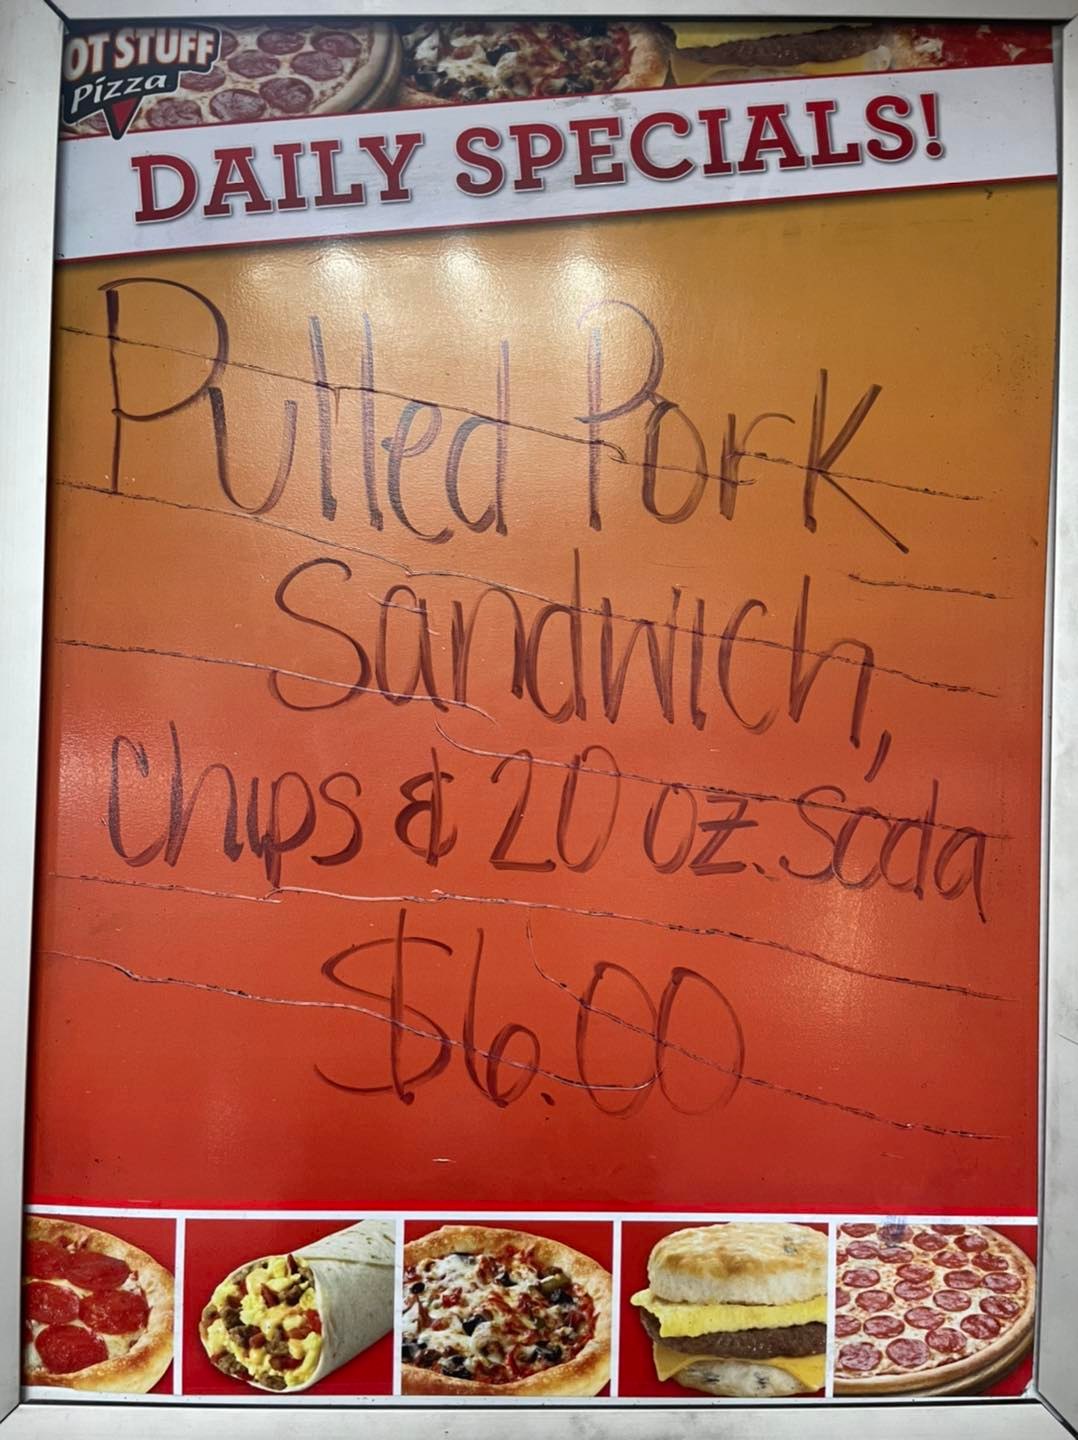 OT STUFF
Pizza
DAILY SPECIALS!
Pulled Pork
Sandwich,
Chips & 20 oz. Soda
$6.00